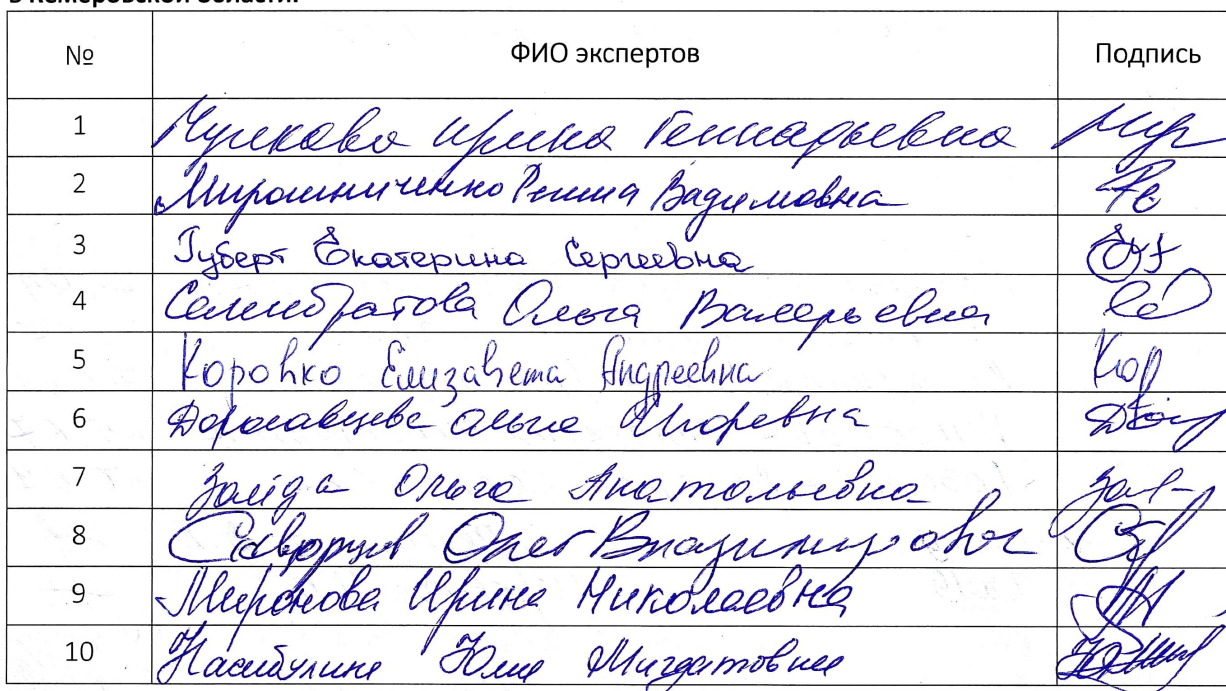 в Кемеровской области.
№ ФИО экспертов Подпись
1 Ирина Геннадьевна
2 Мирошниченко Римма Вадимовна
3 Губерт Екатерина Сергеевна
4 Селибратова Ольга Валерьевна
5 Коровко Елизавета Андреевна
6 Ольга Игоревна
7 Зайда Ольга Анатольевна
8 Скворцов Олег Владимирович
9 Миронова Ирина Николаевна
10 Насибулина Юлия